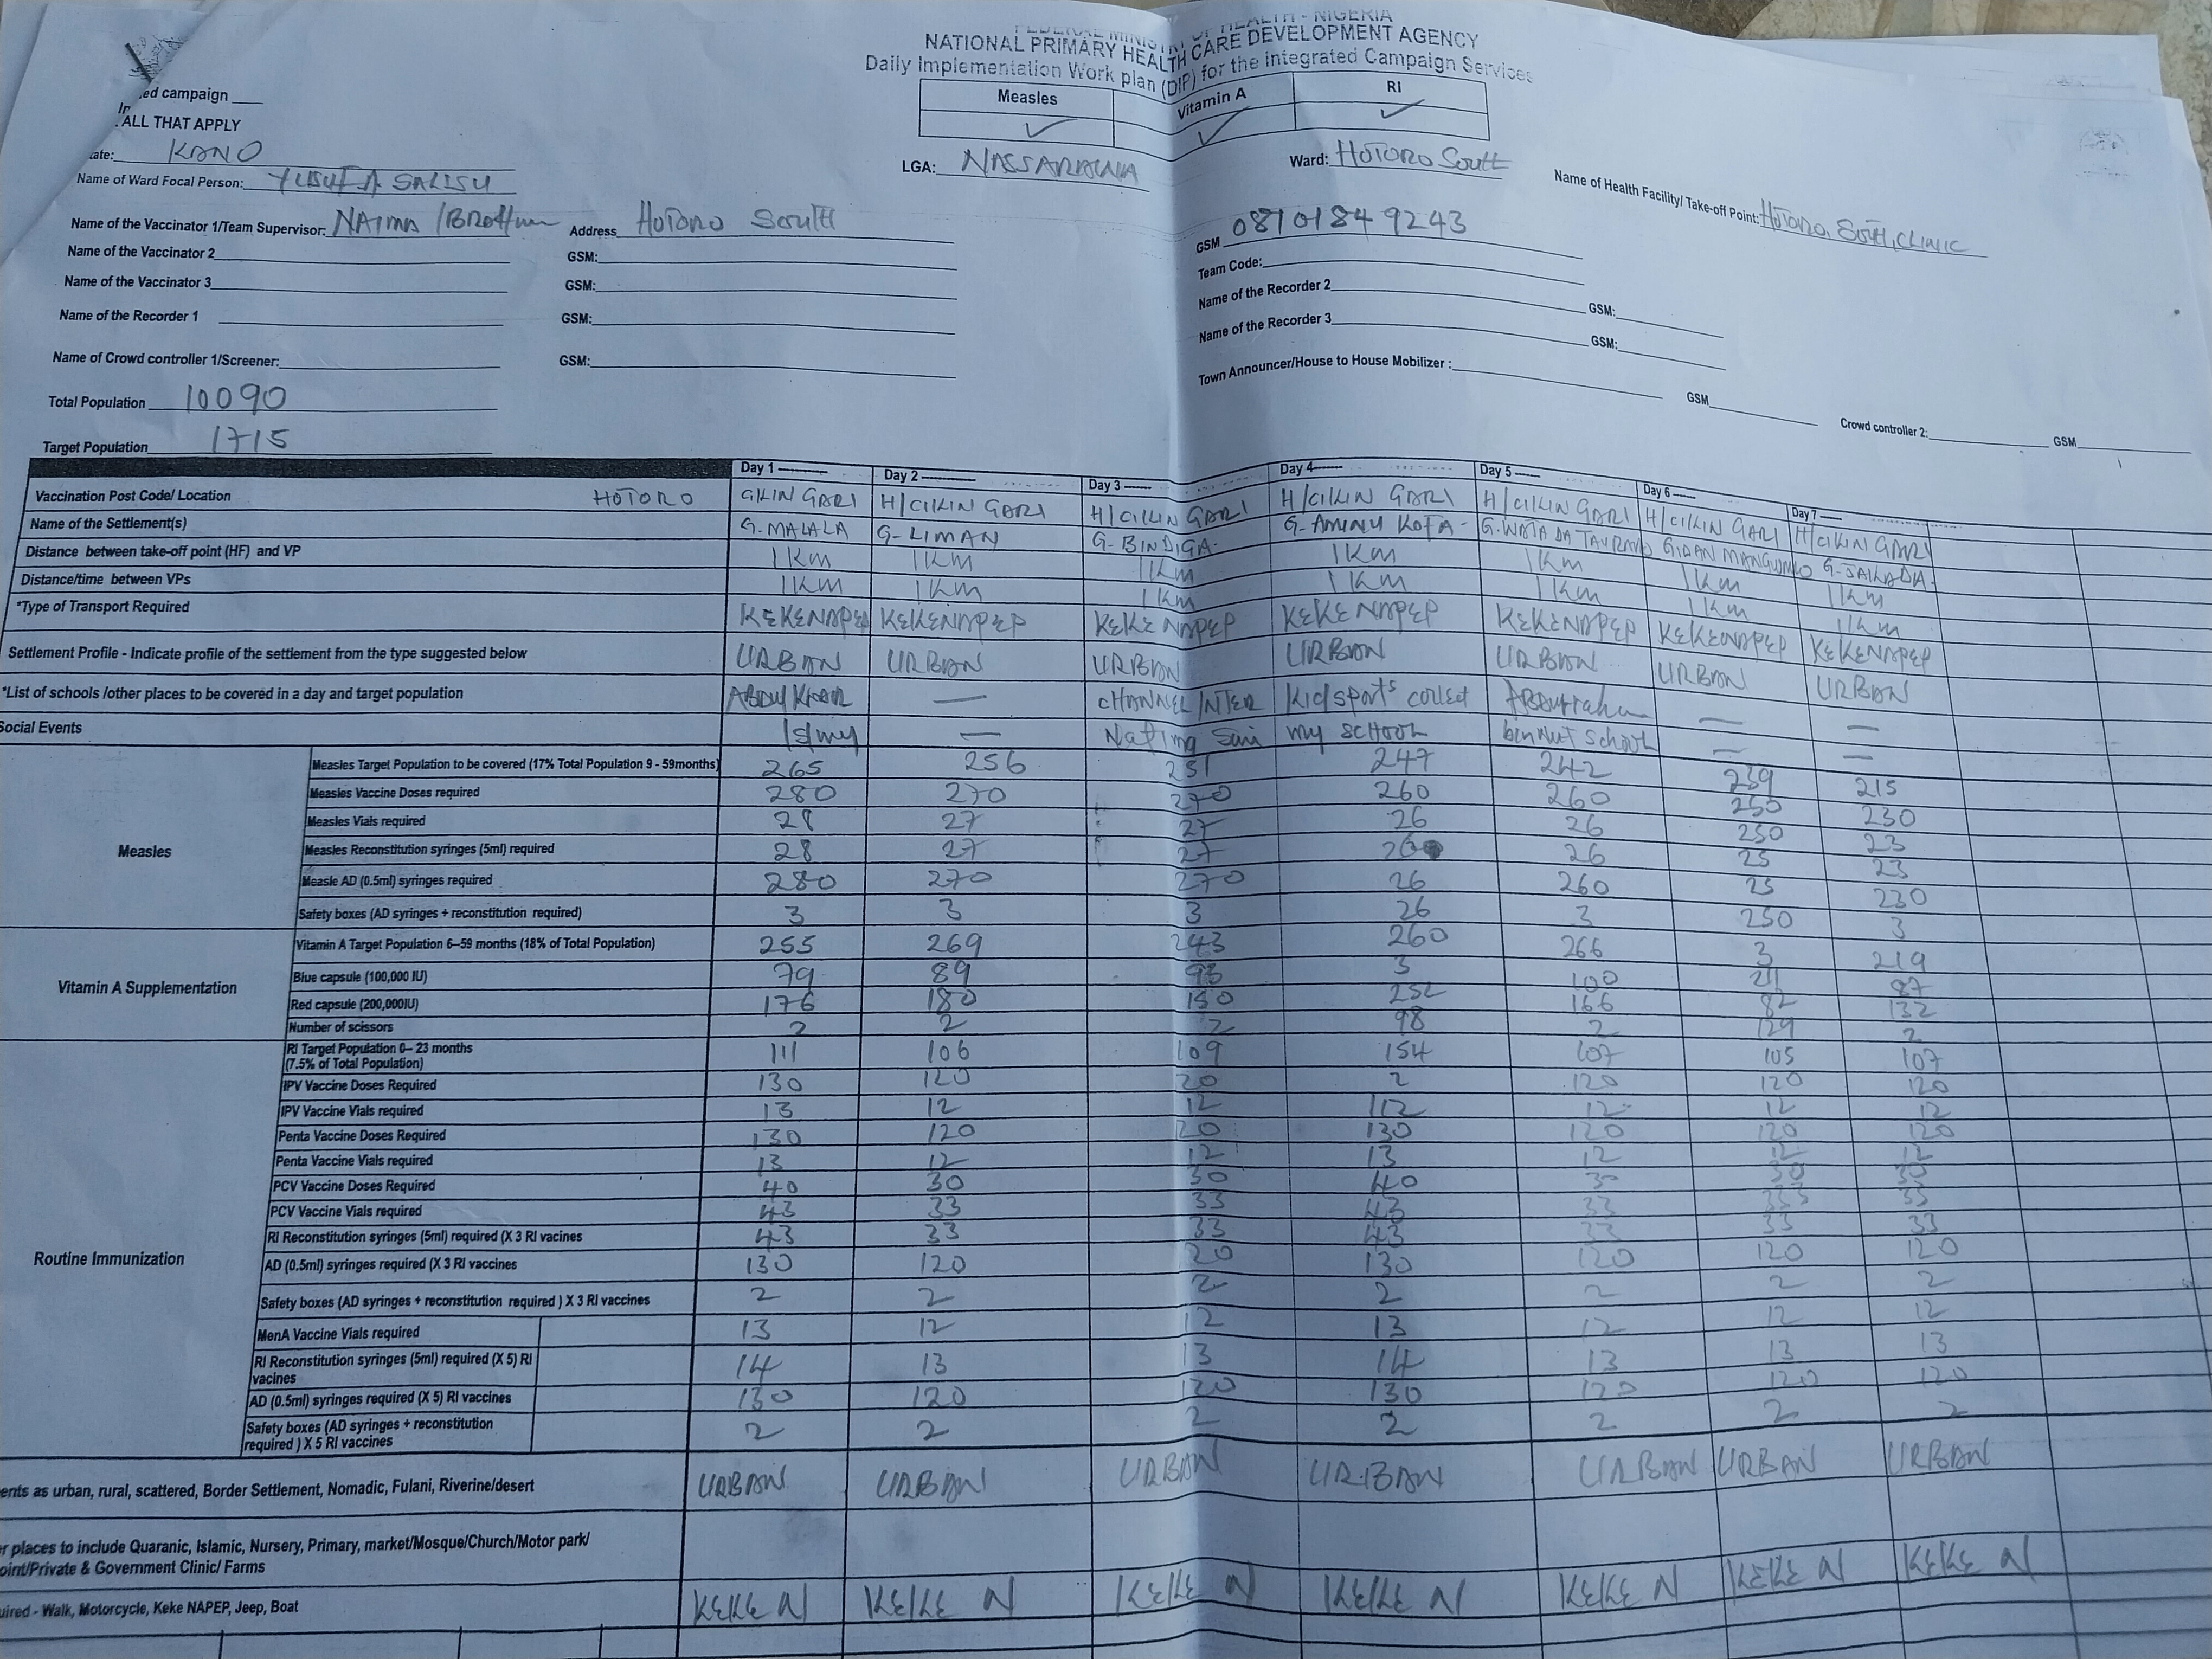 NATIONAL PRIMARY HEALTH CARE DEVELOPMENT AGENCY
Daily Implementation Work plan (DIP) for the Integrated Campaign Services
ed campaign
ALL THAT APPLY
Measles Vitamin A RI
✓ ✓ ✓
KANO LGA: Ward: Hotoro South
Name of Ward Focal Person: Name of Health Facility/ Take-off Point:
Name of the Vaccinator 1/Team Supervisor: Address Hotoro South GSM 08101849243
Name of the Vaccinator 2 GSM: Team Code:
Name of the Vaccinator 3 GSM: Name of the Recorder 2 GSM:
Name of the Recorder 1 GSM: Name of the Recorder 3 GSM:
Name of Crowd controller 1/Screener: GSM: Town Announcer/House to House Mobilizer: GSM Crowd controller 2: GSM
Total Population 10090
Target Population 1715
Day 1 Day 2 Day 3 Day 4 Day 5 Day 6 Day 7
Vaccination Post Code/ Location HOTORO CIKIN GARI H/CIKIN GARI H/CIKIN GARI H/CIKIN GARI H/CIKIN GARI H/CIKIN GARI H/CIKIN GARI
Name of the Settlement(s) G. MALALA G. LIMAN G. BINDIGA G. AMINU KOTA
Distance between take-off point (HF) and VP 1km 1km 1km 1km 1km 1km 1km
Distance/time between VPs 1km 1km 1km 1km 1km 1km 1km
*Type of Transport Required KEKENAPEP KEKENAPEP KEKE NAPEP KEKE NAPEP KEKENAPEP KEKENAPEP KEKENAPEP
Settlement Profile - Indicate profile of the settlement from the type suggested below URBAN URBAN URBAN URBAN URBAN URBAN URBAN
*List of schools /other places to be covered in a day and target population
Social Events
Measles
Measles Target Population to be covered (17% Total Population 9 - 59months) 265 256 251 247 242 239 215
Measles Vaccine Doses required 280 270 270 260 260 250 230
Measles Vials required 28 27 27 26 26 250 23
Measles Reconstitution syringes (5ml) required 28 27 27 26 25 23
Measle AD (0.5ml) syringes required 280 270 270 26 260 25 230
Safety boxes (AD syringes + reconstitution required) 3 3 3 26 3 250 3
Vitamin A Supplementation
Vitamin A Target Population 6-59 months (18% of Total Population) 255 269 243 260 266 3 219
Blue capsule (100,000 IU) 79 89 3 100 87
Red capsule (200,000IU) 176 180 150 252 166 82 132
Number of scissors 2 2 2 98 2 129 2
Routine Immunization
RI Target Population 0- 23 months (7.5% of Total Population) 111 106 109 154 107 105 107
IPV Vaccine Doses Required 130 120 120 2 120 120 120
IPV Vaccine Vials required 13 12 12 12 12 12
Penta Vaccine Doses Required 130 120 120 130 120 120 120
Penta Vaccine Vials required 13 12 12 13 12 12 12
PCV Vaccine Doses Required 40 30 30 40 30 30 30
PCV Vaccine Vials required 43 33 33 43 33 33 33
RI Reconstitution syringes (5ml) required (X 3 RI vacines 43 33 33 43 33 33 33
AD (0.5ml) syringes required (X 3 RI vaccines 130 120 120 130 120 120 120
Safety boxes (AD syringes + reconstitution required ) X 3 RI vaccines 2 2 2 2 2 2 2
MenA Vaccine Vials required 13 12 12 13 12 12 12
RI Reconstitution syringes (5ml) required (X 5) RI vacines 14 13 13 14 13 13 13
AD (0.5ml) syringes required (X 5) RI vaccines 130 120 120 130 120 120 120
Safety boxes (AD syringes + reconstitution required ) X 5 RI vaccines 2 2 2 2 2 2 2
ents as urban, rural, scattered, Border Settlement, Nomadic, Fulani, Riverine/desert URBAN URBAN URBAN URBAN URBAN URBAN URBAN
r places to include Quranic, Islamic, Nursery, Primary, market/Mosque/Church/Motor park/
oint/Private & Government Clinic/ Farms
uired - Walk, Motorcycle, Keke NAPEP, Jeep, Boat KEKE N KEKE N KEKE N KEKE N KEKE N KEKE N KEKE N